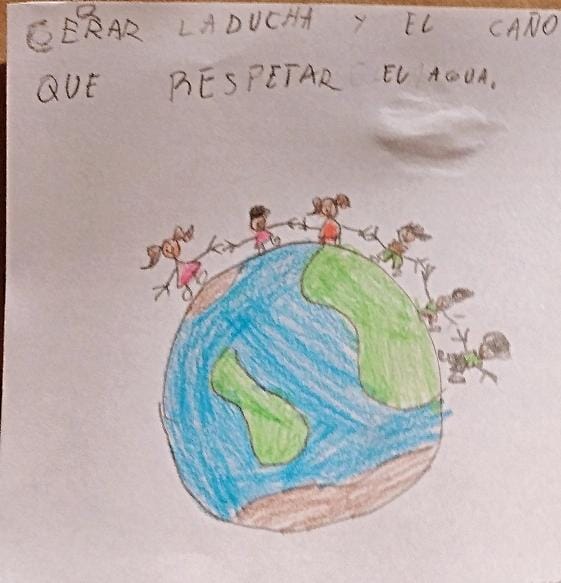 CERAR LA DUCHA Y EL CAÑO
QUE RESPETAR EL AGUA.